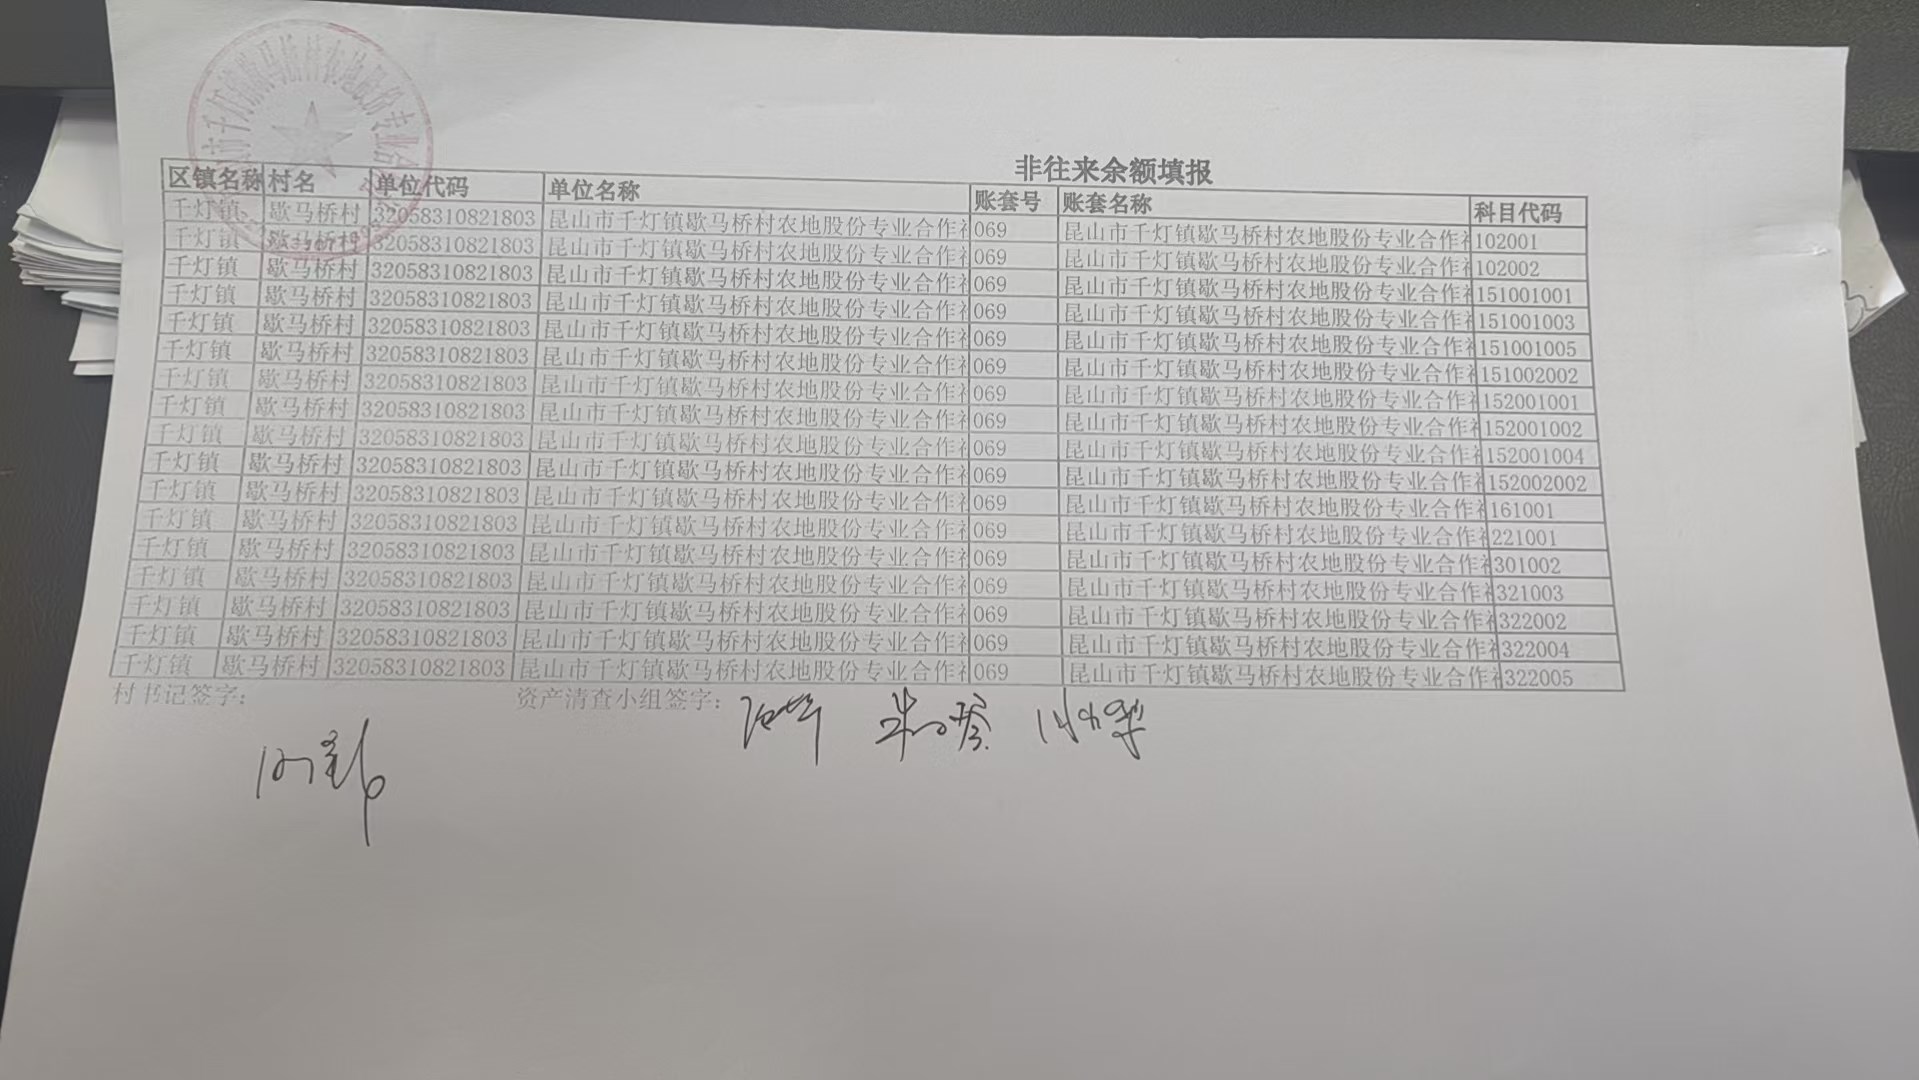 市千灯镇歇马桥村农地股份专业合
非往来余额填报
区镇名称 村名 单位代码 单位名称 账套号 账套名称 科目代码
千灯镇 歇马桥村 32058310821803 昆山市千灯镇歇马桥村农地股份专业合作社 069 昆山市千灯镇歇马桥村农地股份专业合作社 102001
千灯镇 歇马桥村 32058310821803 昆山市千灯镇歇马桥村农地股份专业合作社 069 昆山市千灯镇歇马桥村农地股份专业合作社 102002
千灯镇 歇马桥村 32058310821803 昆山市千灯镇歇马桥村农地股份专业合作社 069 昆山市千灯镇歇马桥村农地股份专业合作社 151001001
千灯镇 歇马桥村 32058310821803 昆山市千灯镇歇马桥村农地股份专业合作社 069 昆山市千灯镇歇马桥村农地股份专业合作社 151001003
千灯镇 歇马桥村 32058310821803 昆山市千灯镇歇马桥村农地股份专业合作社 069 昆山市千灯镇歇马桥村农地股份专业合作社 151001005
千灯镇 歇马桥村 32058310821803 昆山市千灯镇歇马桥村农地股份专业合作社 069 昆山市千灯镇歇马桥村农地股份专业合作社 151002002
千灯镇 歇马桥村 32058310821803 昆山市千灯镇歇马桥村农地股份专业合作社 069 昆山市千灯镇歇马桥村农地股份专业合作社 152001001
千灯镇 歇马桥村 32058310821803 昆山市千灯镇歇马桥村农地股份专业合作社 069 昆山市千灯镇歇马桥村农地股份专业合作社 152001002
千灯镇 歇马桥村 32058310821803 昆山市千灯镇歇马桥村农地股份专业合作社 069 昆山市千灯镇歇马桥村农地股份专业合作社 152001004
千灯镇 歇马桥村 32058310821803 昆山市千灯镇歇马桥村农地股份专业合作社 069 昆山市千灯镇歇马桥村农地股份专业合作社 152002002
千灯镇 歇马桥村 32058310821803 昆山市千灯镇歇马桥村农地股份专业合作社 069 昆山市千灯镇歇马桥村农地股份专业合作社 161001
千灯镇 歇马桥村 32058310821803 昆山市千灯镇歇马桥村农地股份专业合作社 069 昆山市千灯镇歇马桥村农地股份专业合作社 221001
千灯镇 歇马桥村 32058310821803 昆山市千灯镇歇马桥村农地股份专业合作社 069 昆山市千灯镇歇马桥村农地股份专业合作社 301002
千灯镇 歇马桥村 32058310821803 昆山市千灯镇歇马桥村农地股份专业合作社 069 昆山市千灯镇歇马桥村农地股份专业合作社 321003
千灯镇 歇马桥村 32058310821803 昆山市千灯镇歇马桥村农地股份专业合作社 069 昆山市千灯镇歇马桥村农地股份专业合作社 322002
千灯镇 歇马桥村 32058310821803 昆山市千灯镇歇马桥村农地股份专业合作社 069 昆山市千灯镇歇马桥村农地股份专业合作社 322004
千灯镇 歇马桥村 32058310821803 昆山市千灯镇歇马桥村农地股份专业合作社 069 昆山市千灯镇歇马桥村农地股份专业合作社 322005
村书记签字: 资产清查小组签字: